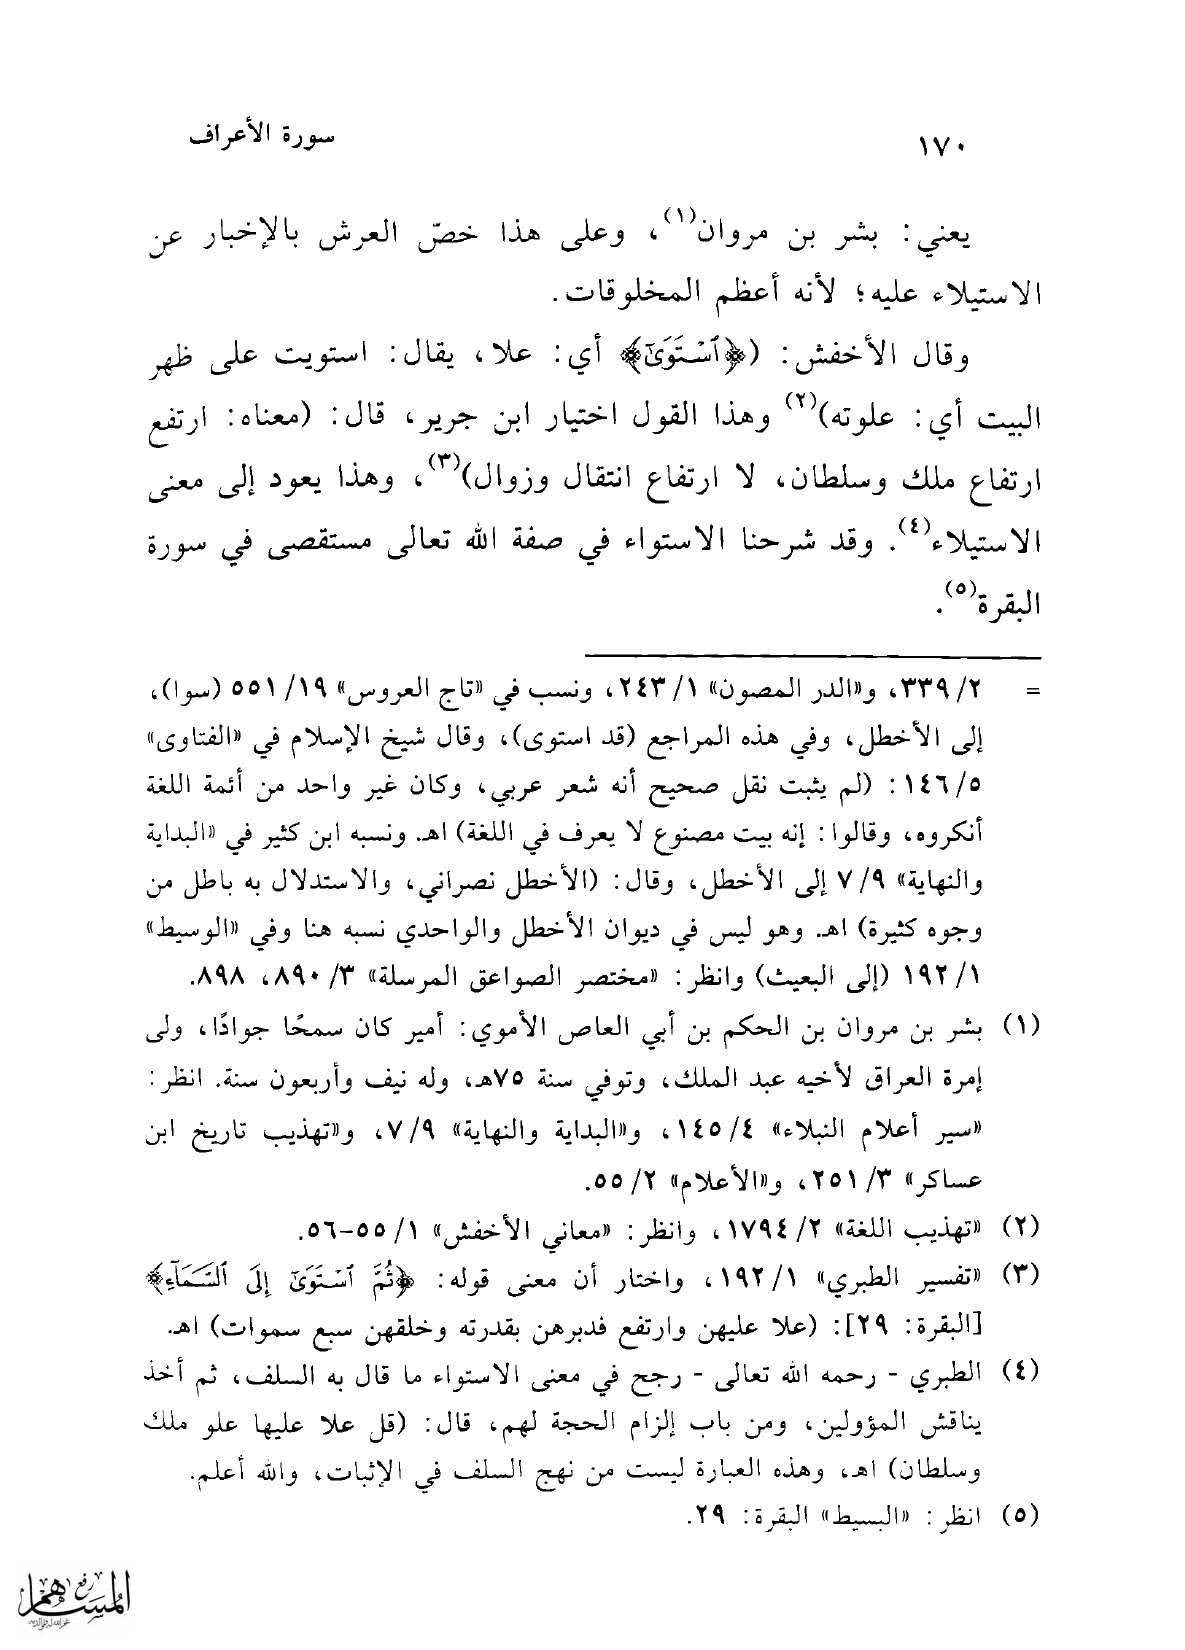 ١٧٠ سورة الأعراف
يعني: بشر بن مروان(١)، وعلى هذا خصّ العرش بالإخبار عن
الاستيلاء عليه؛ لأنه أعظم المخلوقات.
وقال الأخفش: (﴿ٱسْتَوَىٰ﴾ أي: علا، يقال: استويت على ظهر
البيت أي: علوته)(٢) وهذا القول اختيار ابن جرير، قال: (معناه: ارتفع
ارتفاع ملك وسلطان، لا ارتفاع انتقال وزوال)(٣)، وهذا يعود إلى معنى
الاستيلاء(٤). وقد شرحنا الاستواء في صفة الله تعالى مستقصى في سورة
البقرة(٥).
= ٢/ ٣٣٩، و«الدر المصون» ١/ ٢٤٣، ونسب في «تاج العروس» ١٩/ ٥٥١ (سوا)،
إلى الأخطل، وفي هذه المراجع (قد استوى)، وقال شيخ الإسلام في «الفتاوى»
٥/ ١٤٦: (لم يثبت نقل صحيح أنه شعر عربي، وكان غير واحد من أئمة اللغة
أنكروه، وقالوا: إنه بيت مصنوع لا يعرف في اللغة) اهـ. ونسبه ابن كثير في «البداية
والنهاية» ٩/ ٧ إلى الأخطل، وقال: (الأخطل نصراني، والاستدلال به باطل من
وجوه كثيرة) اهـ. وهو ليس في ديوان الأخطل والواحدي نسبه هنا وفي «الوسيط»
١/ ١٩٢ (إلى البعيث) وانظر: «مختصر الصواعق المرسلة» ٣/ ٨٩٠، ٨٩٨.
(١) بشر بن مروان بن الحكم بن أبي العاص الأموي: أمير كان سمحًا جوادًا، ولى
إمرة العراق لأخيه عبد الملك، وتوفي سنة ٧٥هـ، وله نيف وأربعون سنة. انظر:
«سير أعلام النبلاء» ٤/ ١٤٥، و«البداية والنهاية» ٩/ ٧، و«تهذيب تاريخ ابن
عساكر» ٣/ ٢٥١، و«الأعلام» ٢/ ٥٥.
(٢) «تهذيب اللغة» ٢/ ١٧٩٤، وانظر: «معاني الأخفش» ١/ ٥٥-٥٦.
(٣) «تفسير الطبري» ١/ ١٩٢، واختار أن معنى قوله: ﴿ثُمَّ ٱسْتَوَىٰٓ إِلَى ٱلسَّمَآءِ﴾
[البقرة: ٢٩]: (علا عليهن وارتفع فدبرهن بقدرته وخلقهن سبع سموات) اهـ.
(٤) الطبري - رحمه الله تعالى - رجح في معنى الاستواء ما قال به السلف، ثم أخذ
يناقش المؤولين، ومن باب إلزام الحجة لهم، قال: (قل علا عليها علو ملك
وسلطان) اهـ، وهذه العبارة ليست من نهج السلف في الإثبات، والله أعلم.
(٥) انظر: «البسيط» البقرة: ٢٩.